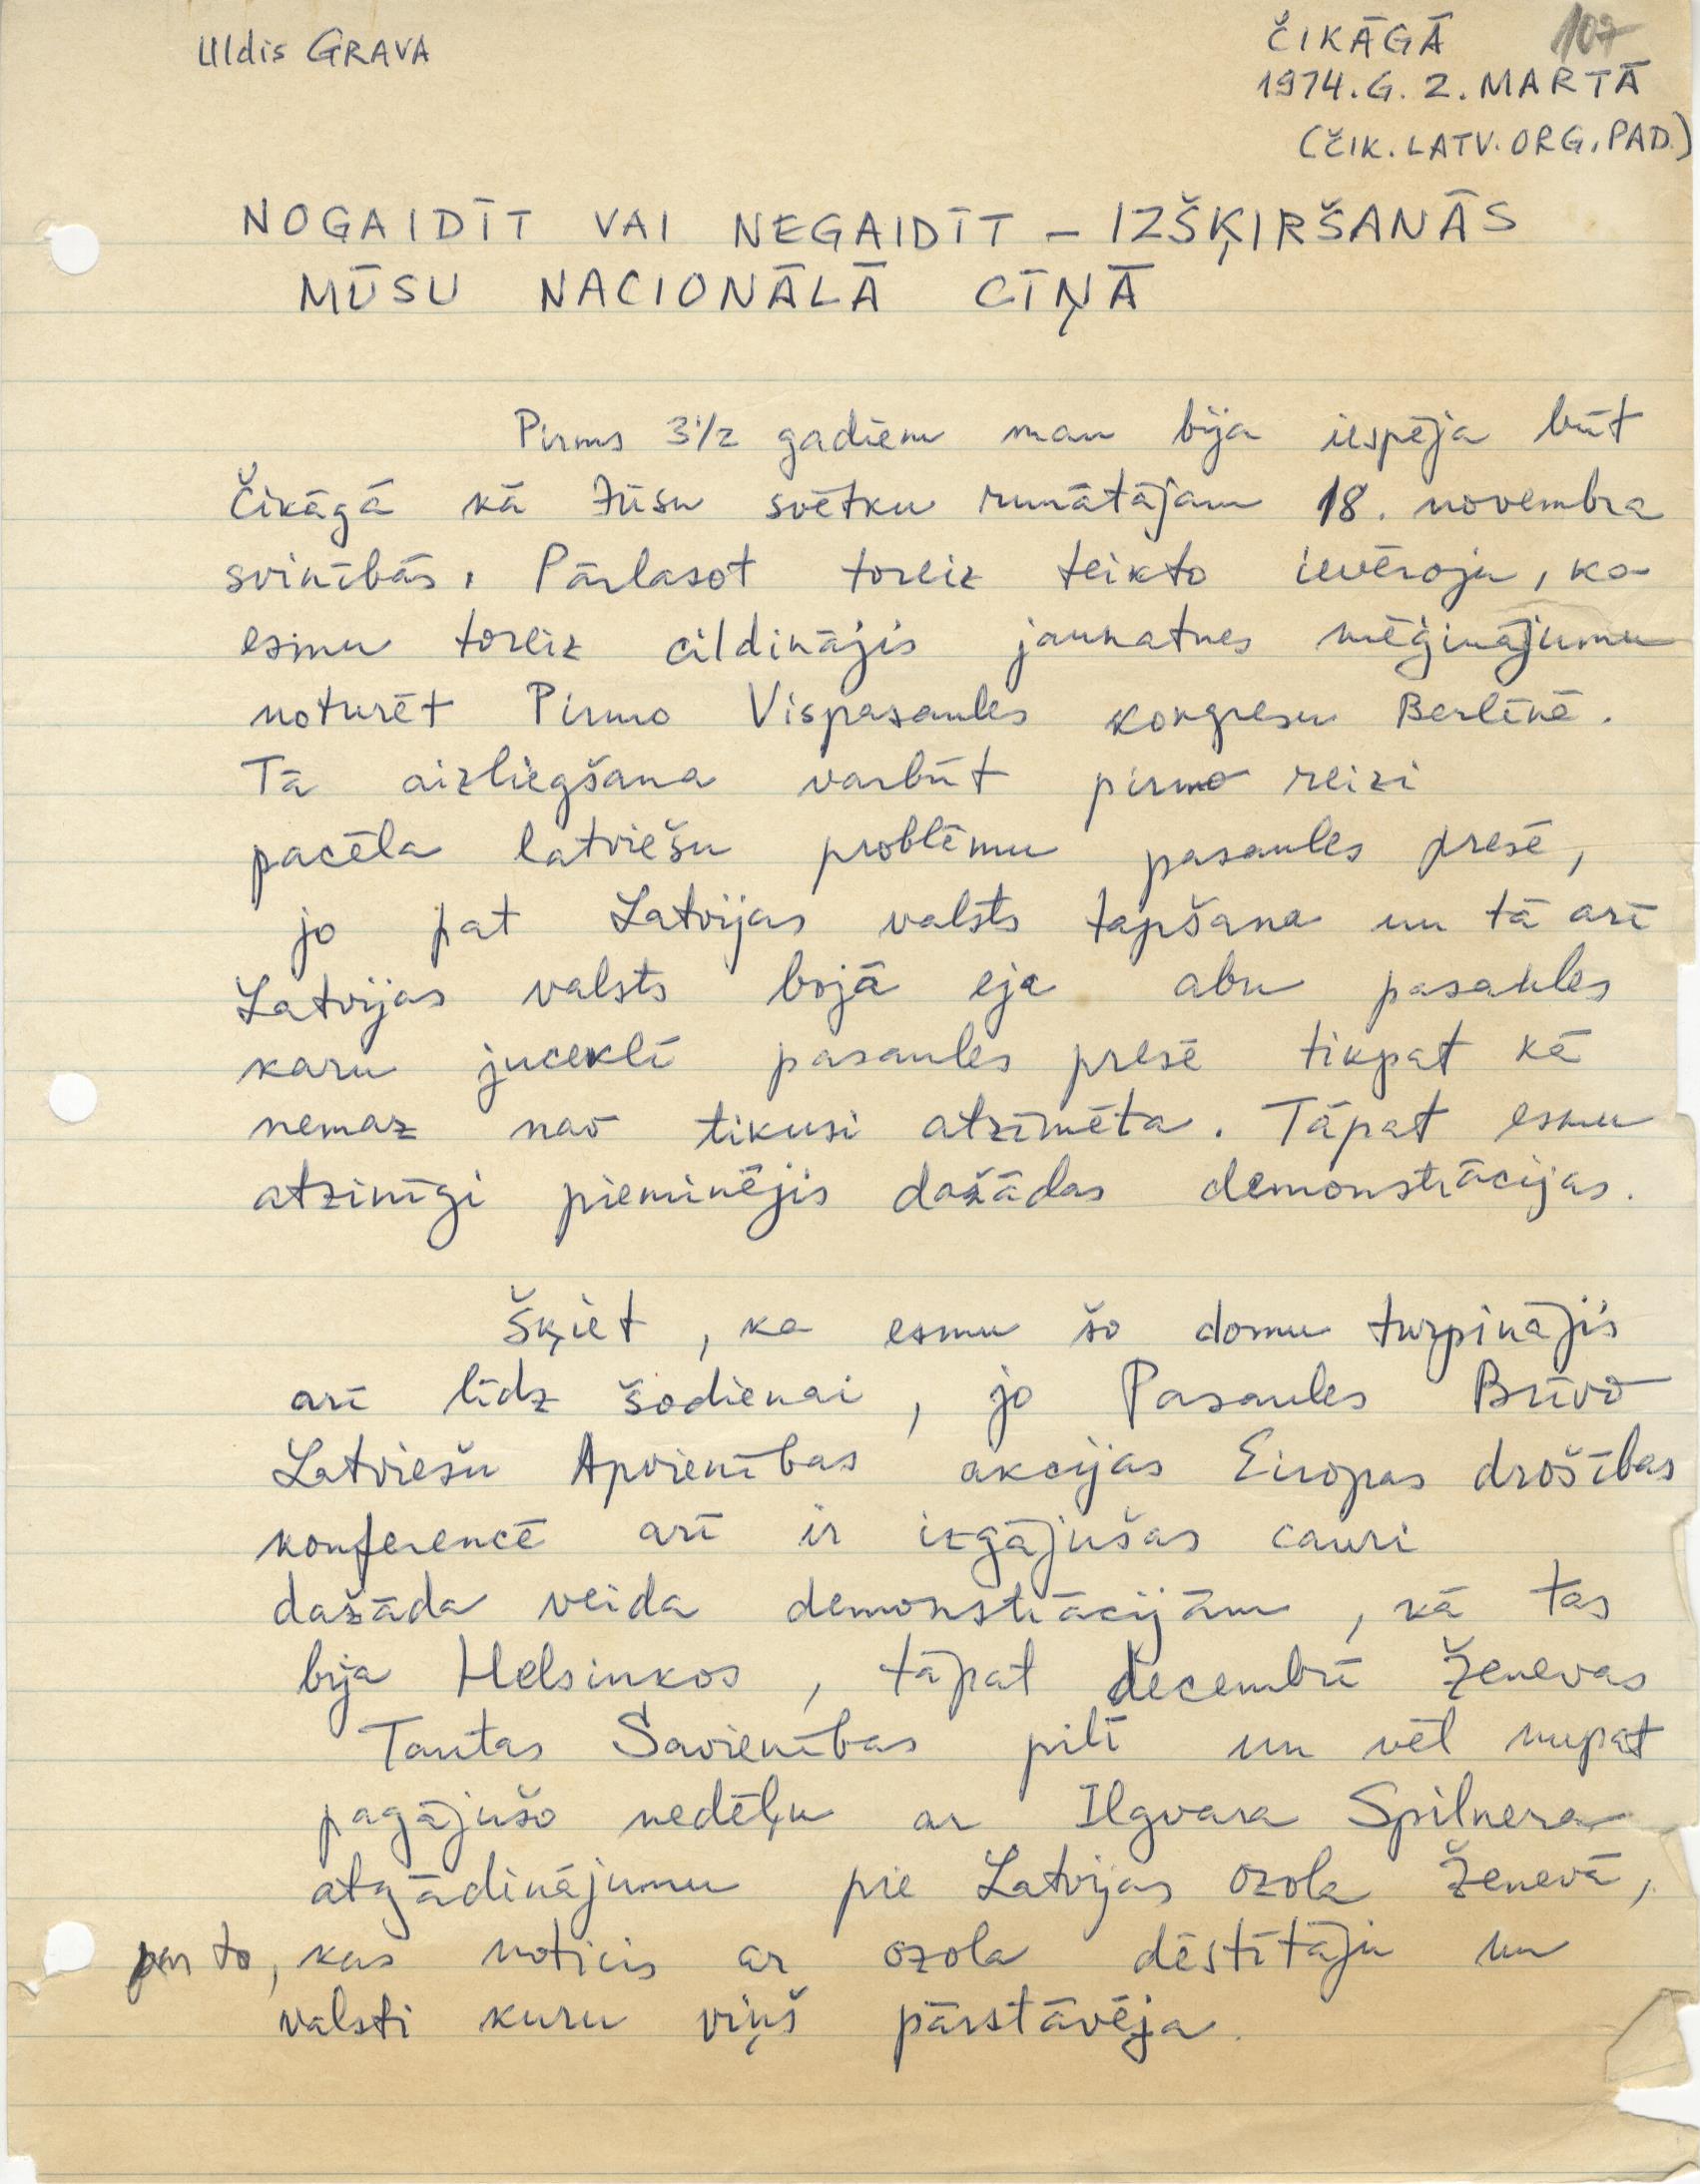 Uldis GRAVA
ČIKĀGĀ 107
1974.G. 2. MARTĀ
(ČIK. LATV. ORG. PAD.)
NOGAIDĪT VAI NEGAIDĪT – IZŠĶIRŠANĀS
MŪSU NACIONĀLĀ CĪŅĀ
Pirms 3 1/2 gadiem man bija iespēja būt
Čikāgā kā Jūsu svētku runātājam 18. novembra
svinībās. Pārlasot toreiz teikto ievēroju, ka
esmu toreiz cildinājis jaunatnes mēģinājumu
noturēt Pirmo Vispasaules kongresu Berlīnē.
Tā aizliegšana varbūt pirmo reizi
pacēla latviešu problēmu pasaules presē,
jo pat Latvijas valsts tapšana un tā arī
Latvijas valsts bojā eja abu pasaules
karu juceklī pasaules presē tikpat kā
nemaz nav tikusi atzīmēta. Tāpat esmu
atzinīgi pieminējis dažādas demonstrācijas.
Šķiet, ka esmu šo domu turpinājis
arī līdz šodienai, jo Pasaules Brīvo
Latviešu Apvienības akcijas Eiropas drošības
konferencē arī ir izgājušas cauri
dažāda veida demonstrācijām, kā tas
bija Helsinkos, tāpat decembrī Ženevas
Tautas Savienības pilī un vēl nupat
pagājušo nedēļu ar Ilgvara Spilnera
atgādinājumu pie Latvijas ozola Ženevā,
par to, kas noticis ar ozola dēstītāju un
valsti kuru viņš pārstāvēja.